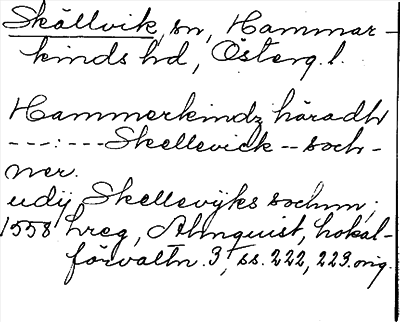 Skällvik, sn, Hammar-
kinds hd, Österg. l.
Hammerkindz häradh
---:---Skellevick -- soch-
ner.
udij Skellevijks sochnn;
1558 hreg, Almquist, Lokal-
förvaltn. 3, ss. 222, 223. orig.